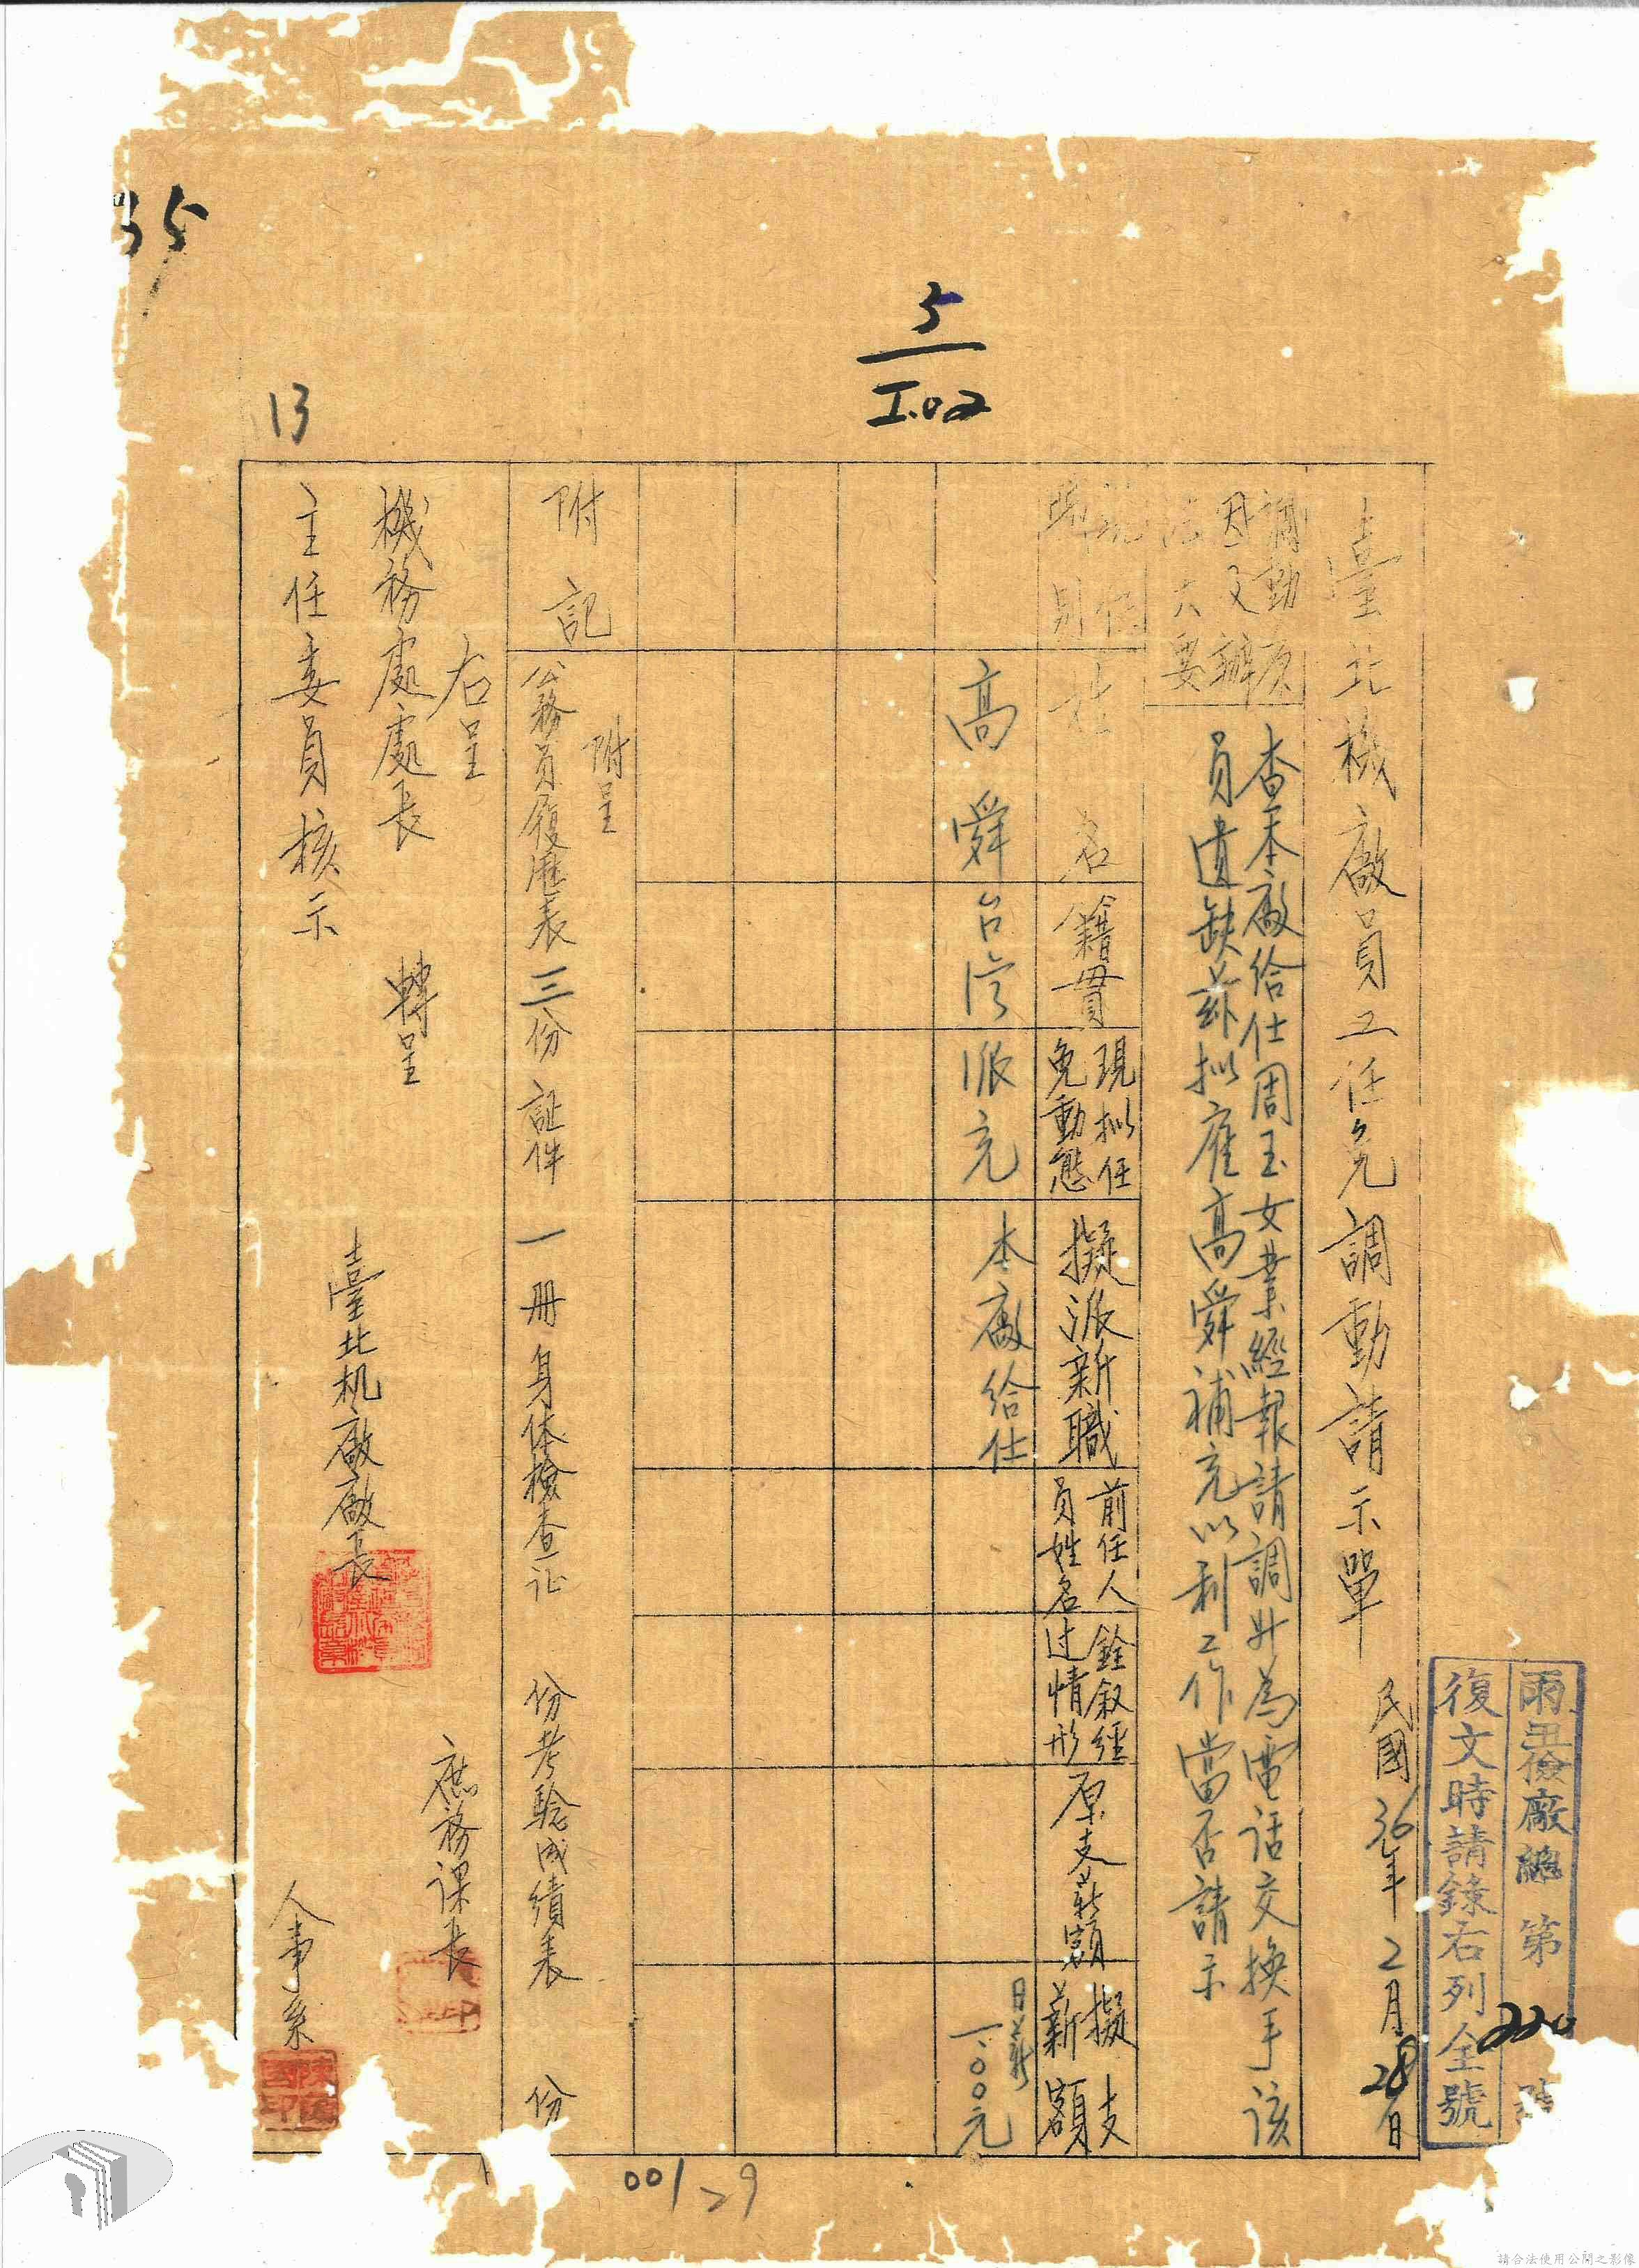 35
5
I.02
13
雨丑檢廠總 第220號
復文時請錄右列全號
臺北機廠員工任免調動請示單
民國36年2月28日
調動原
因及辦
法大要
查本廠給仕周玉女業經報請調升為電話交換手該
員遺缺茲拟雇高舜補充以利工作當否請示
現任
職別
姓名
籍貫
現拟任
免動態
擬派新職
前任人
員姓名
銓叙經
过情形
原支薪額
擬支
薪額
高舜
台湾
派充
本廠給仕
日薪
一.〇〇元
附記
附呈
公務員履歷表三份 証件 一冊 身体檢查证 份 考驗成績表 份
右呈
機務處處長 轉呈
主任委員核示
臺北机廠廠長
庶務課長
人事系
00129
請合法使用公開之影像